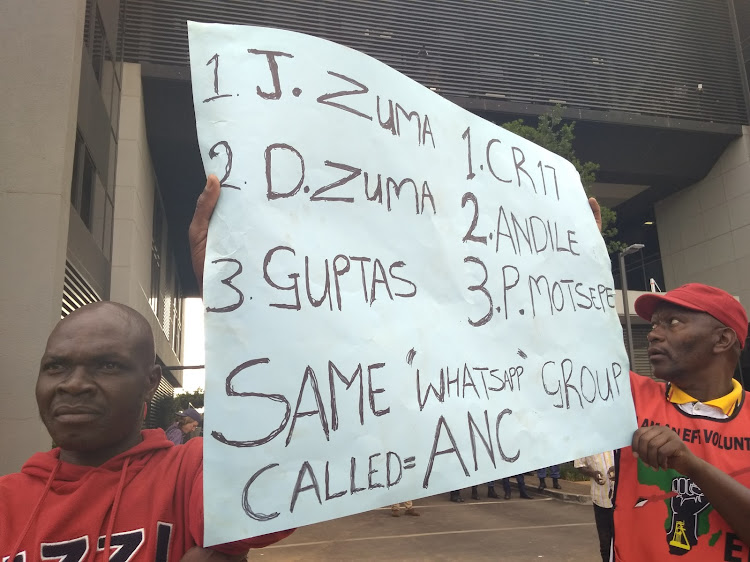 1. J. ZUMA
2. D. ZUMA
3. GUPTAS
1. CR17
2. ANDILE
3. P. MOTSEPE
SAME "WHATSAPP" GROUP
CALLED = ANC
AM AN EFF VOLUNT